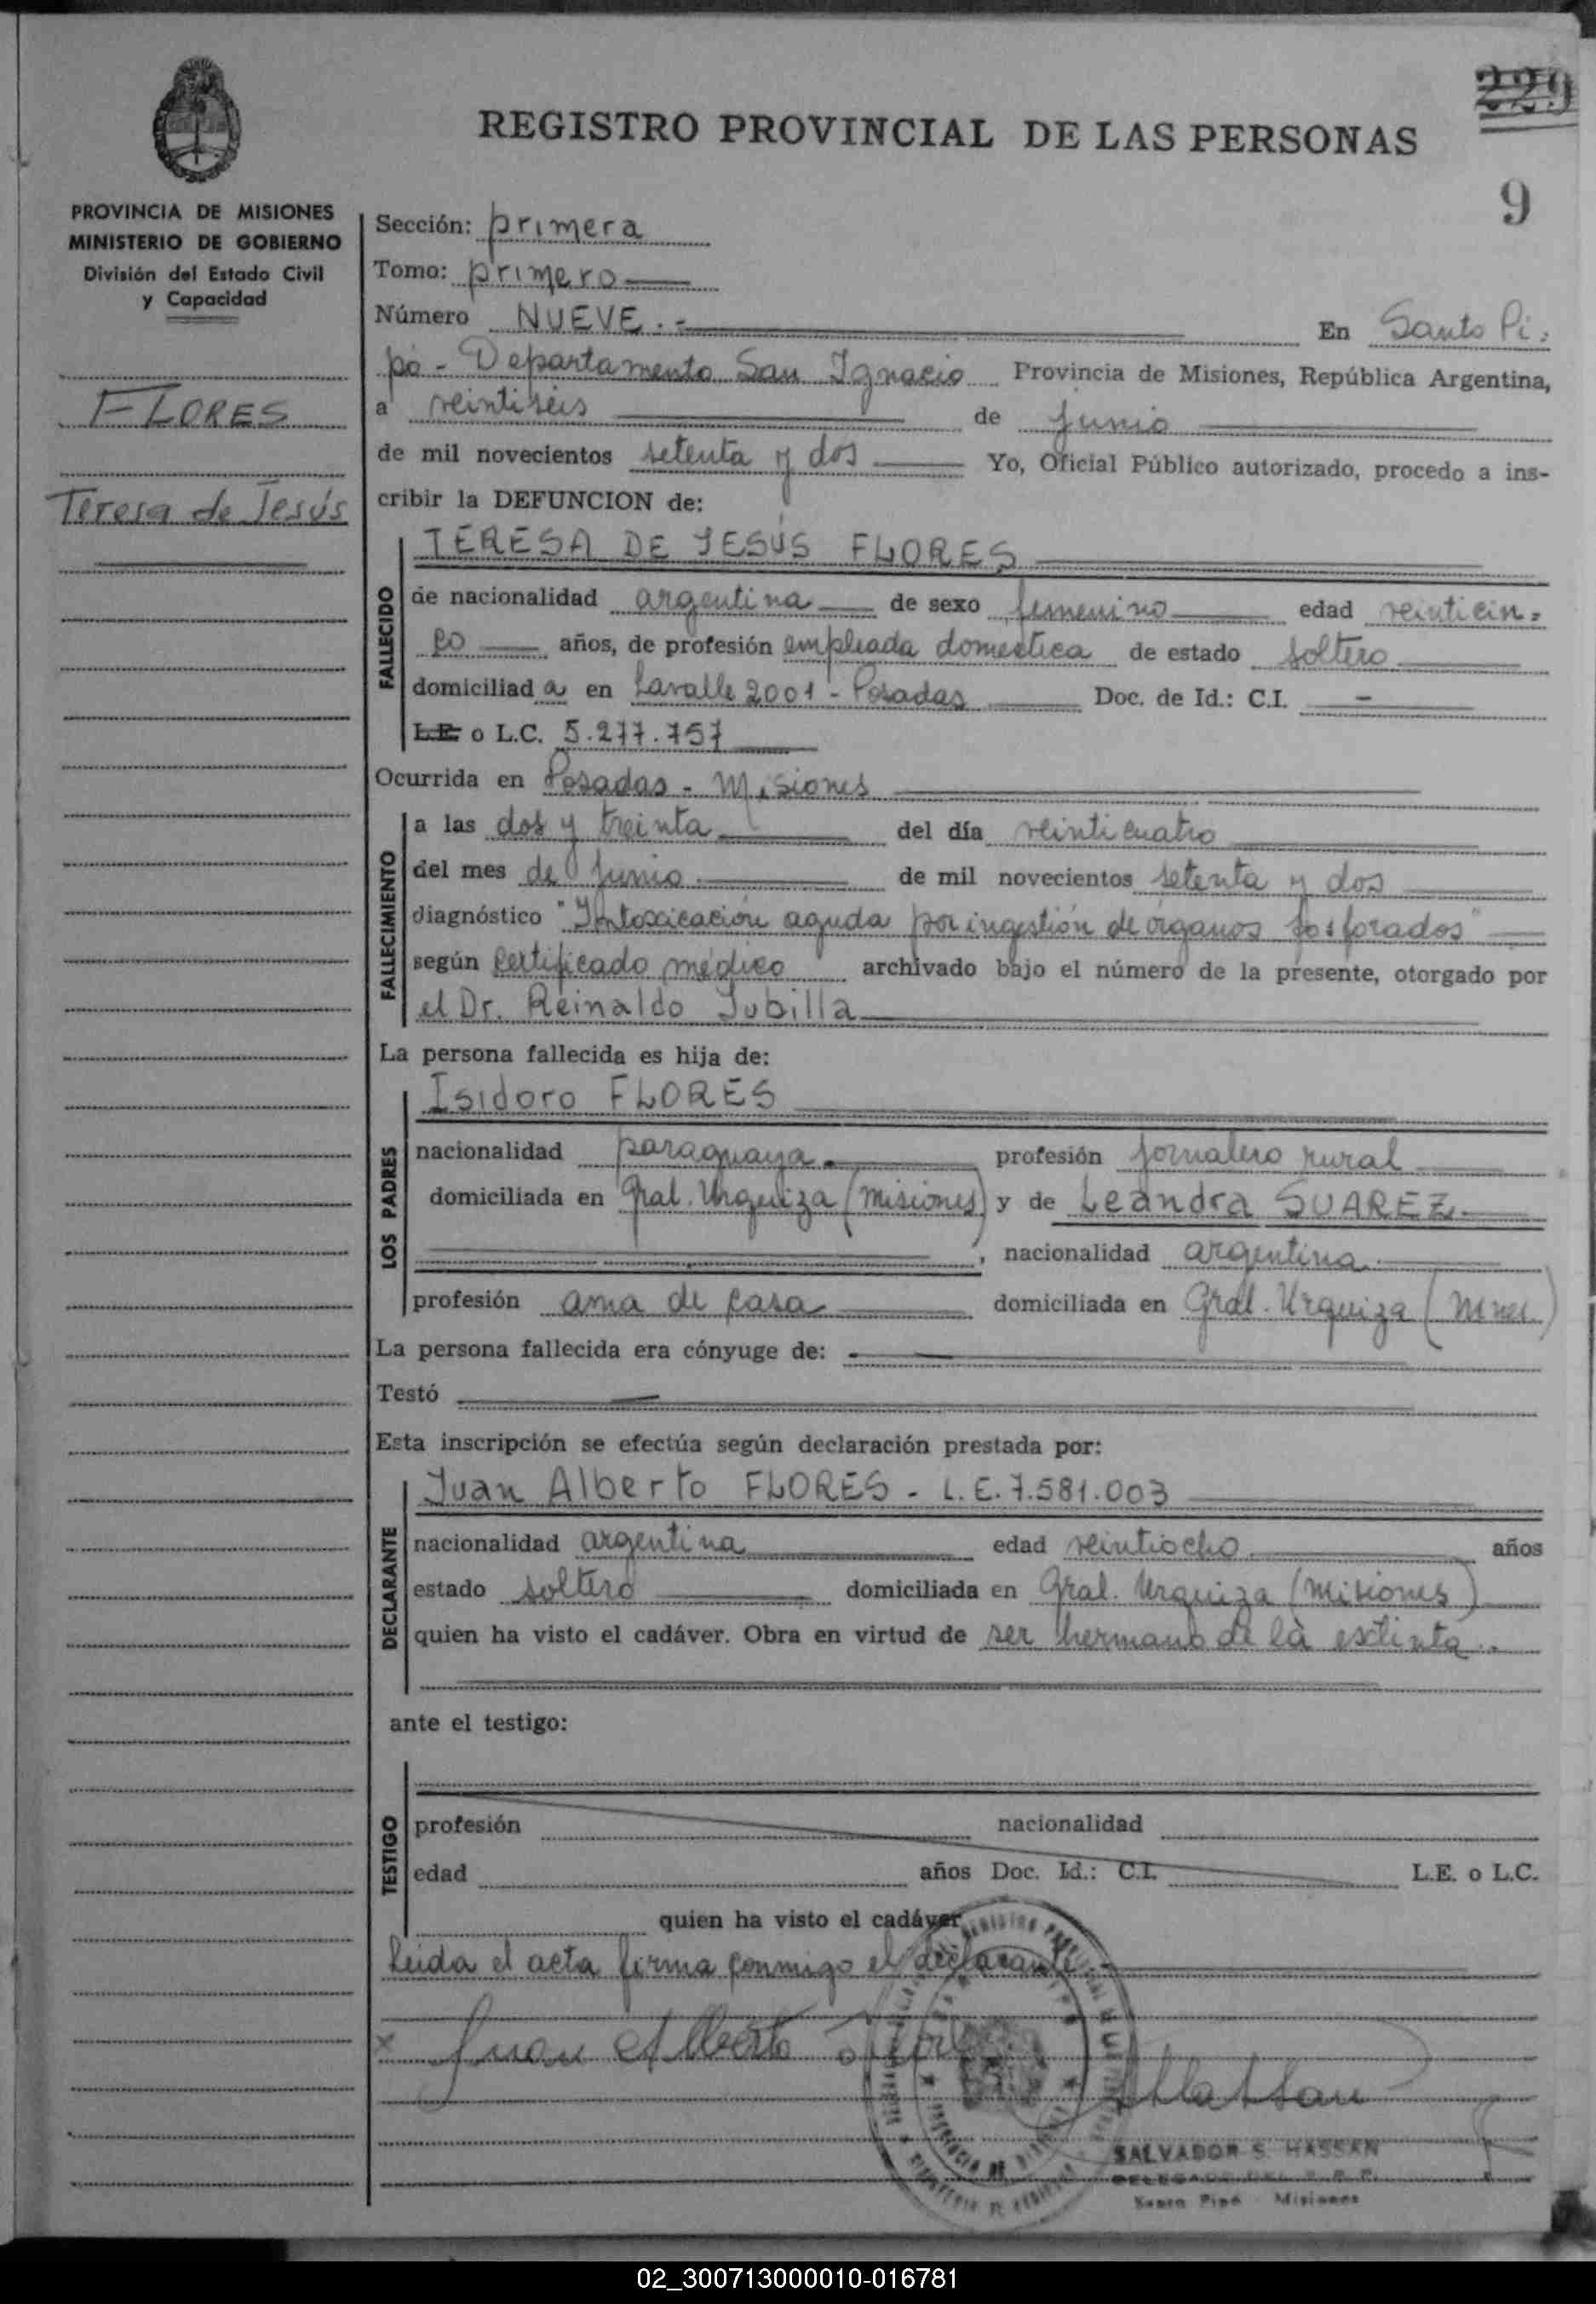 229
REGISTRO PROVINCIAL DE LAS PERSONAS
9
PROVINCIA DE MISIONES
MINISTERIO DE GOBIERNO
División del Estado Civil
y Capacidad
FLORES
Teresa de Jesús
Sección: primera
Tomo: primero
Número NUEVE.- En Santo Pi-
pó - Departamento San Ignacio Provincia de Misiones, República Argentina,
a veintiséis de junio
de mil novecientos setenta y dos Yo, Oficial Público autorizado, procedo a ins-
cribir la DEFUNCION de:
TERESA DE JESÚS FLORES
FALLECIDO
de nacionalidad argentina de sexo femenino edad veinticin-
co años, de profesión empleada domestica de estado soltero
domiciliad a en Lavalle 2001 - Posadas Doc. de Id.: C.I. -
L.E. o L.C. 5.277.757
Ocurrida en Posadas - Misiones
FALLECIMIENTO
a las dos y treinta del día veinticuatro
del mes de junio de mil novecientos setenta y dos
diagnóstico "Intoxicación aguda por ingestión de órganos fosforados"
según certificado médico archivado bajo el número de la presente, otorgado por
el Dr. Reinaldo Jubilla
La persona fallecida es hija de:
LOS PADRES
Isidoro FLORES
nacionalidad paraguaya profesión jornalero rural
domiciliada en Gral. Urquiza (Misiones) y de Leandra SUAREZ
, nacionalidad argentina
profesión ama de casa domiciliada en Gral. Urquiza (Mnes.)
La persona fallecida era cónyuge de:
Testó
Esta inscripción se efectúa según declaración prestada por:
DECLARANTE
Juan Alberto FLORES - L.E. 7.581.003
nacionalidad argentina edad veintiocho años
estado soltero domiciliada en Gral. Urquiza (Misiones)
quien ha visto el cadáver. Obra en virtud de ser hermano de la extinta.
ante el testigo:
TESTIGO
profesión nacionalidad
edad años Doc. Id.: C.I. L.E. o L.C.
quien ha visto el cadáver
Leida el acta firma conmigo el declarante.
x Juan Alberto Flores
SALVADOR S. HASSAN
Santo Pipó - Misiones
02_300713000010-016781